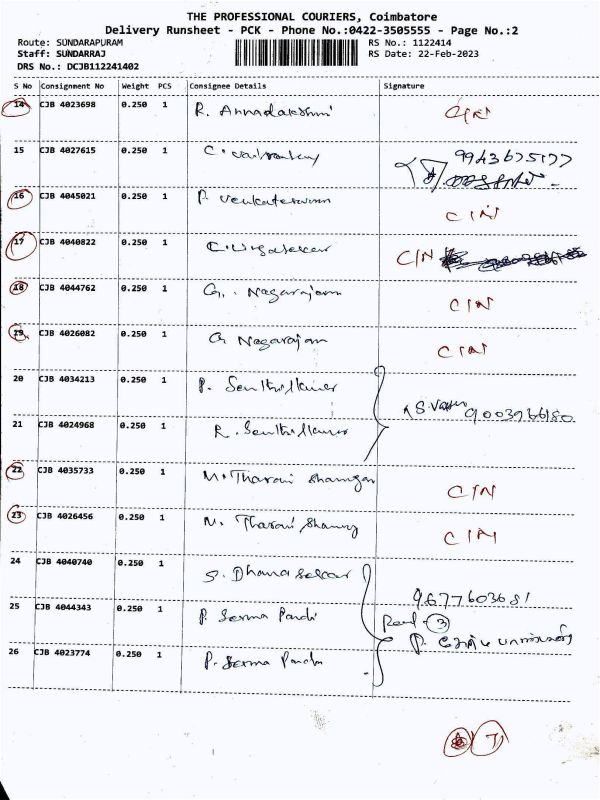 THE PROFESSIONAL COURIERS, Coimbatore
Delivery Runsheet - PCK - Phone No.:0422-3505555 - Page No.:2
Route: SUNDARAPURAM
RS No.: 1122414
Staff: SUNDARRAJ
RS Date: 22-Feb-2023
DRS No.: DCJB112241402
S No Consignment No Weight PCS Consignee Details Signature
14 CJB 4023698 0.250 1 R. Annadakshmi C/N
15 CJB 4027615 0.250 1 C.
16 CJB 4045021 0.250 1 P. Venkateswaran C/N
17 CJB 4040822 0.250 1 C/N
18 CJB 4044762 0.250 1 G. Nagarajan C/N
19 CJB 4026082 0.250 1 G Nagarajan C/N
20 CJB 4034213 0.250 1 P. Senthilkumar
S. Vasu
21 CJB 4024968 0.250 1 R. Senthilkumar
22 CJB 4035733 0.250 1 M. Tharani C/N
23 CJB 4026456 0.250 1 M. Tharani C/N
24 CJB 4040740 0.250 1 S. Dhanasekar
9677603681
25 CJB 4044343 0.250 1 P. Serma Pandi
3
26 CJB 4023774 0.250 1 P. Serma Pandi
7